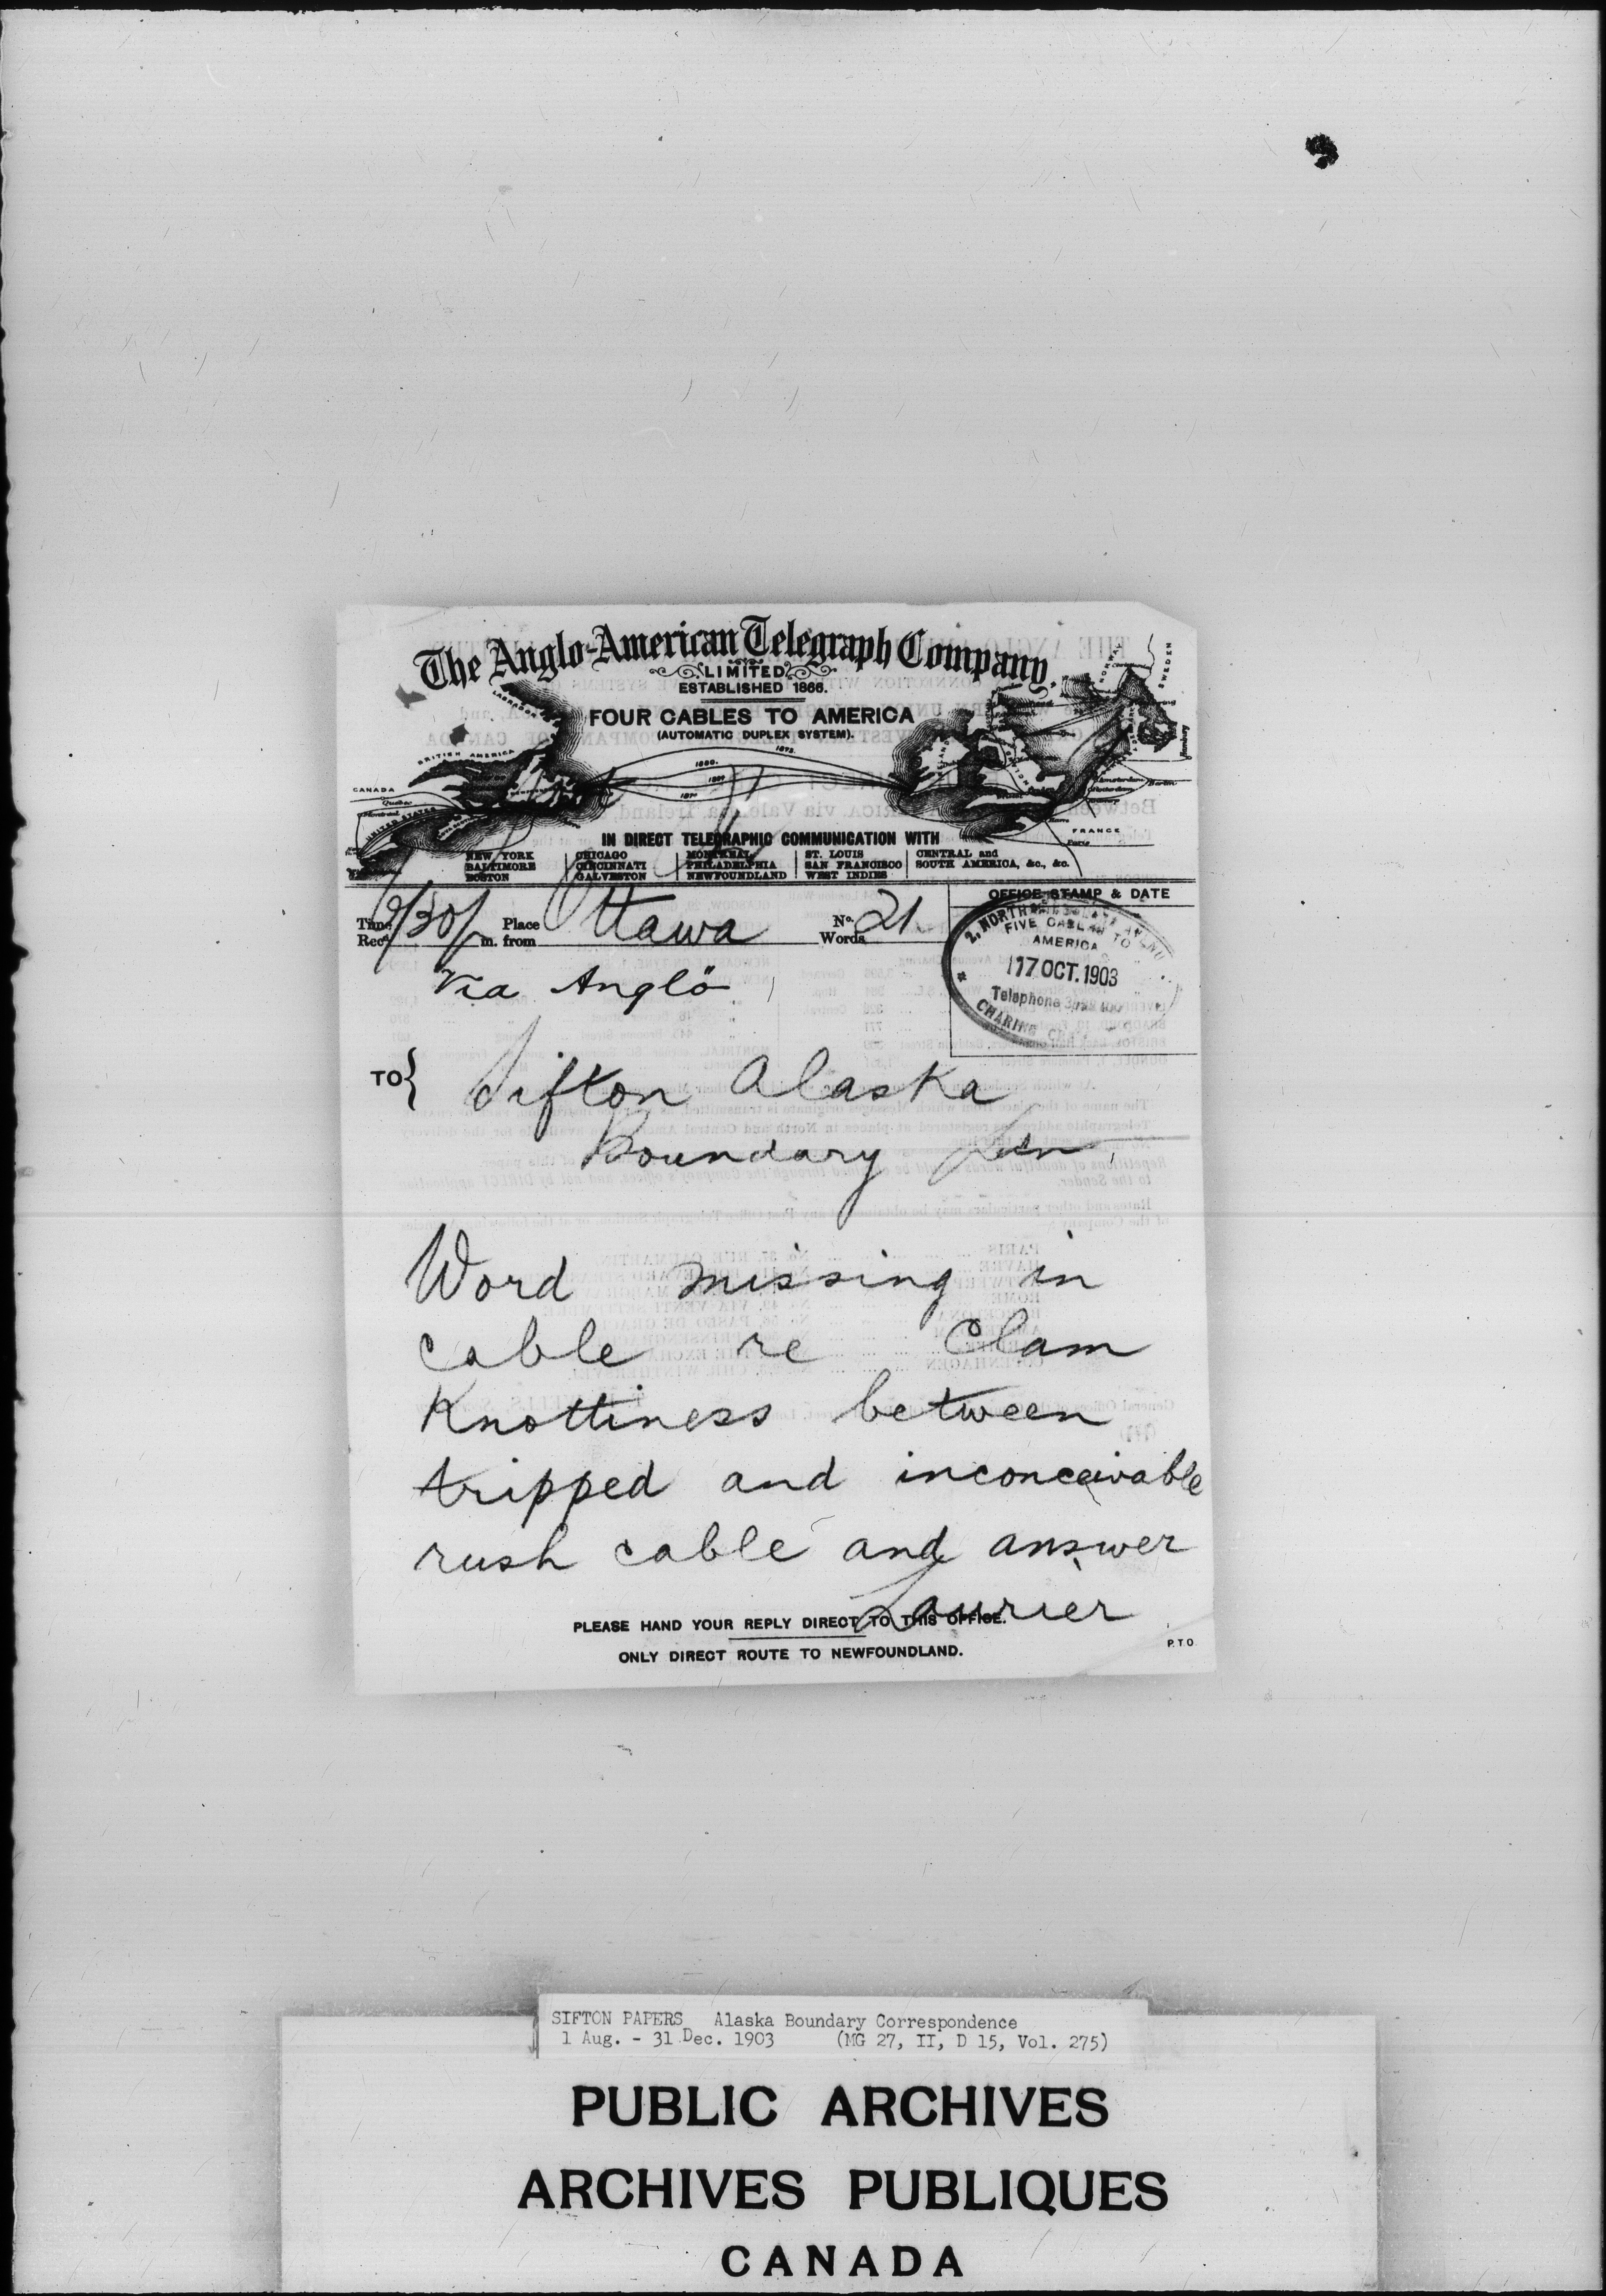 The Anglo-American Telegraph Company,
LIMITED
ESTABLISHED 1866.
FOUR CABLES TO AMERICA
(AUTOMATIC DUPLEX SYSTEM).
LABRADOR
BRITISH AMERICA
CANADA
Quebec
Montreal
UNITED STATES
1880.
SWEDEN
Hamburg
Amsterdam
Berlin
FRANCE
Paris
IN DIRECT TELEGRAPHIC COMMUNICATION WITH
NEW YORK BALTIMORE BOSTON
CHICAGO CINCINNATI GALVESTON
MONTREAL PHILADELPHIA NEWFOUNDLAND
ST. LOUIS SAN FRANCISCO WEST INDIES
CENTRAL and SOUTH AMERICA, &c., &c.
OFFICE STAMP & DATE
Time Recd. /30 p m. Place from Ottawa No. Words 21
2, NORTH
FIVE CABLES TO
AMERICA
17 OCT. 1903
Telephone
CHARING
Via Anglo
TO { Sifton Alaska
Boundary Ldn
Word missing in
cable re Clam
Knottiness between
tripped and inconceivable
rush cable and answer
Laurier
PLEASE HAND YOUR REPLY DIRECT TO THIS OFFICE.
ONLY DIRECT ROUTE TO NEWFOUNDLAND.
P.T.O
SIFTON PAPERS Alaska Boundary Correspondence
1 Aug. - 31 Dec. 1903 (MG 27, II, D 15, Vol. 275)
PUBLIC ARCHIVES
ARCHIVES PUBLIQUES
CANADA